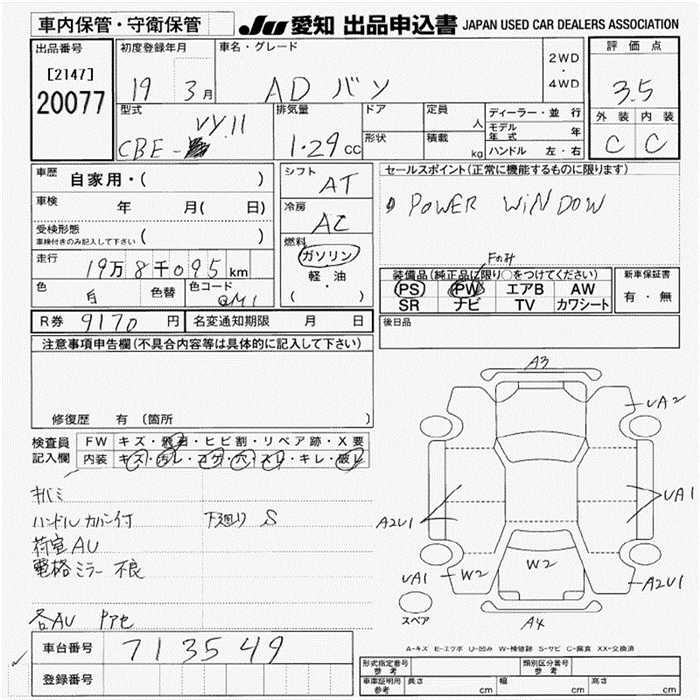 車内保管・守衛保管
JU 愛知 出品申込書 JAPAN USED CAR DEALERS ASSOCIATION
出品番号
[2147]
20077
初度登録年月
19 3月
車名・グレード
AD バン
2WD
・
4WD
評価点
3.5
外装 内装
C C
型式
VY11
CBE-
排気量
1.29cc
ドア
形状
定員
人
積載
kg
ディーラー・並行
モデル年式 年
ハンドル 左・右
車歴 自家用・( )
車検 年 月( 日)
受検形態
車検付きのみ記入して下さい ( )
走行 19万8千095km
色 白 色替 色コード QM1
R券 9170円 名変通知期限 月 日
シフト
AT
冷房
AC
燃料
ガソリン
軽・油
( )
セールスポイント(正常に機能するものに限ります)
POWER WINDOW
Fのみ
装備品(純正品に限り○をつけてください)
PS PW エアB AW
SR ナビ TV カワシート
新車保証書
有・無
後日品
注意事項申告欄(不具合内容等は具体的に記入して下さい)
修復歴 有 (箇所 )
検査員記入欄
FW キズ・飛石・ヒビ割・リペア跡・X要
内装 キズ・汚レ・コゲ・穴・スレ・キレ・破レ
キバミ
ハンドル カバン付 下廻り S
荷室AU
電格ミラー 不良
各AU Pアセ
A3
UA2
A2U1
UA1
UA1
W2
W2
A2U1
A4
スペア
A-キズ E-エクボ U-凹み W-補修跡 S-サビ C-腐食 XX-交換済
車台番号 713549
登録番号
形式指定番号
参考
類別区分番号
参考
車庫証明用
参考
長さ cm 幅 cm 高さ cm